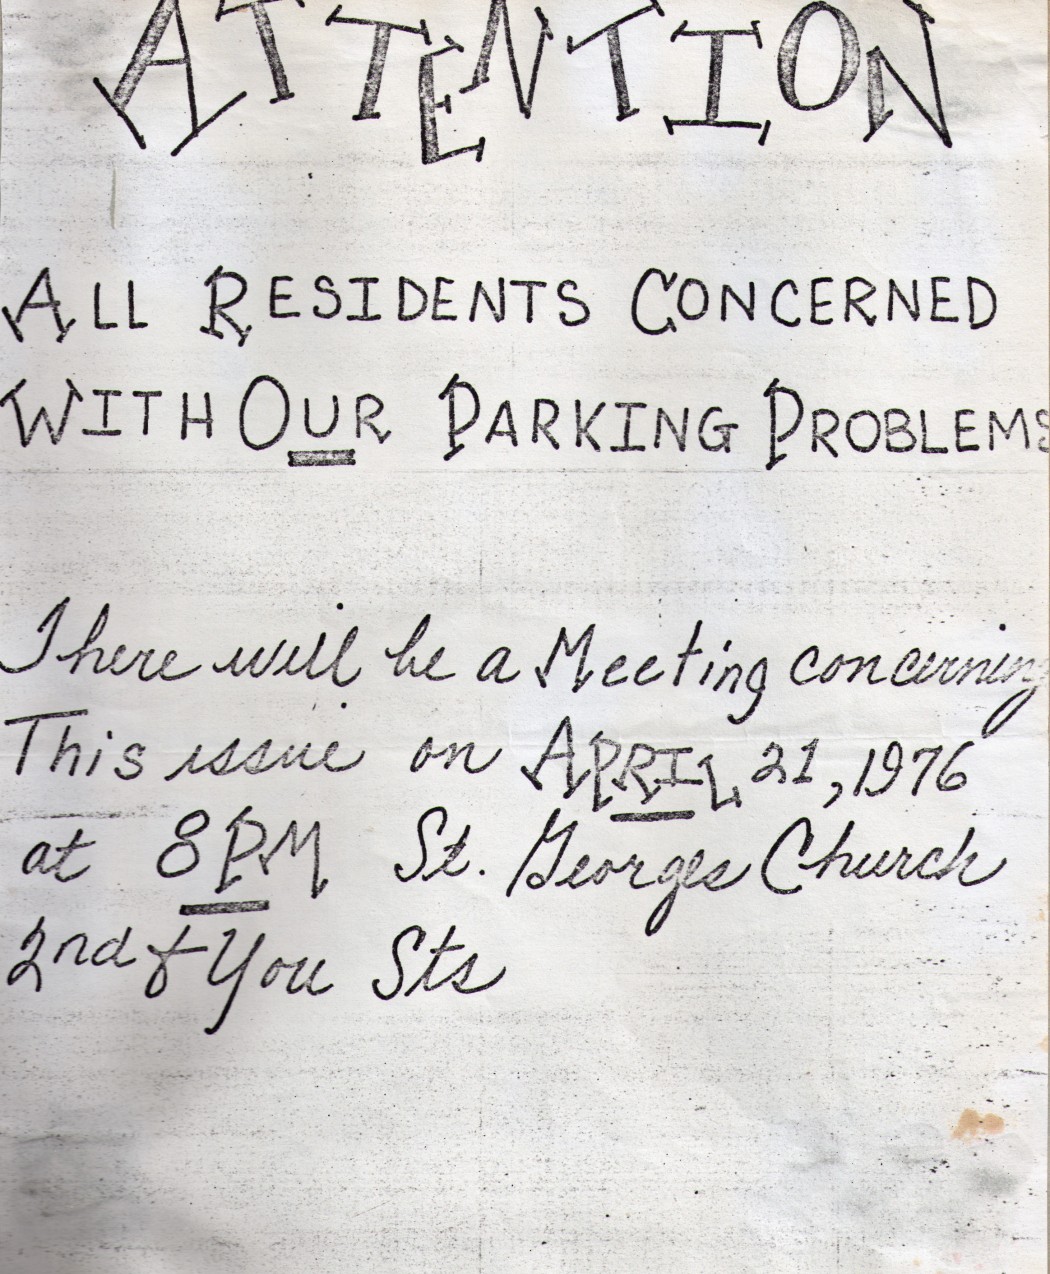 ATTENTION
ALL RESIDENTS CONCERNED
WITH OUR PARKING PROBLEMS
There will be a Meeting concerning
This issue on APRIL 21, 1976
at 8PM St. Georges Church
2nd & You Sts